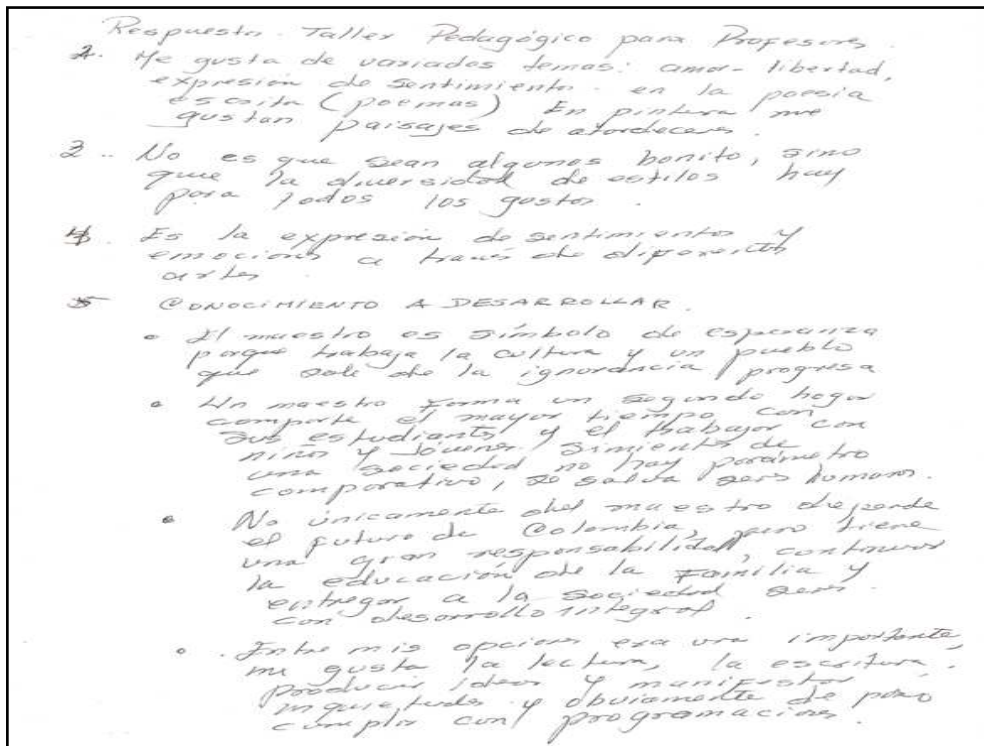 Respuesta. Taller Pedagógico para Profesores.
2. Me gusta de variados temas: amor- libertad,
expresión de sentimiento. en la poesia
escrita (poemas) En pintura me
gustan paisajes de atardeceres.
3.. No es que sean algunos bonito, sino
que la diversidad de estilos hay
para todos los gustos.
4. Es la expresión de sentimientos y
emociones a través de diferentes
artes.
5 CONOCIMIENTO A DESARROLLAR.
• El maestro es símbolo de esperanza
porque trabaja la cultura y un pueblo
que sale de la ignorancia progresa
• Un maestro forma un segundo hogar
comparte el mayor tiempo con
sus estudiantes y el trabajar con
niños y jóvenes, simiente de
una sociedad no hay parámetro
comparativo, se salva seres humanos.
• No únicamente del maestro depende
el futuro de Colombia, pero tiene
una gran responsabilidad, continuar
la educación de la Familia y
entregar a la sociedad seres
con desarrollo integral.
• Entre mis opciones era una importante,
me gusta la lectura, la escritura,
producir ideas y manifestar
inquietudes y obviamente de paso
cumplir con programaciones.